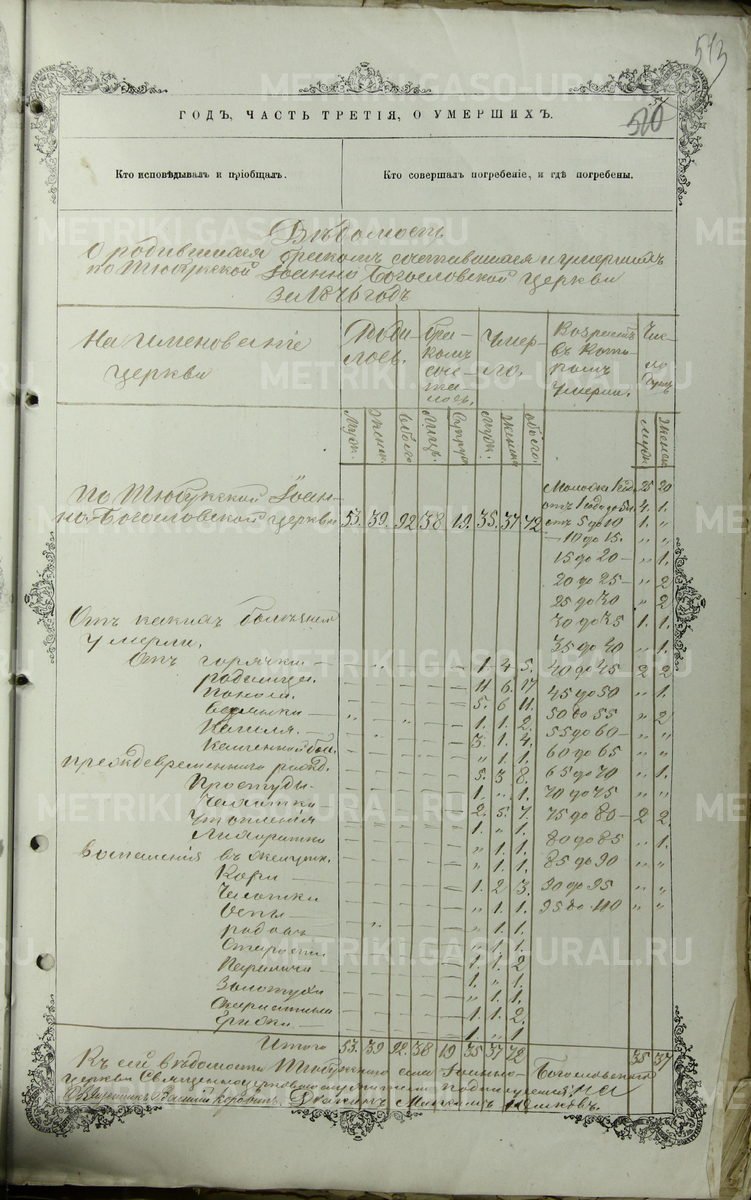 513
510
ГОДЪ, ЧАСТЬ ТРЕТІЯ, О УМЕРШИХЪ.
Кто исповѣдывалъ и пріобщалъ. Кто совершалъ погребеніе, и гдѣ погребены.
Вѣдомость
О родившихся бракомъ сочетавшихся и умершихъ
по Тюбукской Іоанно Богословской церкви
за 1876 годъ
На именованіе церкви
Роди-лось.
Бра-комъ соче-талось.
Умер-ло.
Возрастъ въ кото-ромъ умерли.
Чис-ло
Муж. Женск. Обоего Лицъ. Супруж. Муж. Женск. обоего. муж. Женск.
По Тюбукской Іоан-
но-Богословской церкви 53. 39. 92 38 19. 35. 37 72.
Моложе 1 год. 25 20
отъ 1 года до 5 л. 4. 1.
отъ 5 до 10 1. "
— 10 до 15. " "
15 до 20 — " 1.
20 до 25 — " 2
25 до 30 " 2
30 до 35 1. 1.
35 до 40 " 1.
40 до 45 2 2
45 до 50 " 1.
50 до 55 " 2
55 до 60 — " "
60 до 65 " "
65 до 70 " 1.
70 до 75 " "
75 до 80 — 2 2
80 до 85 " 1.
85 до 90 " "
90 до 95 " "
95 до 110 " "
Отъ какихъ болѣзней
умерли.
Отъ горячки — 1. 4 5.
родимца. 11 6. 17
Поноса. 5. 6 11.
1. 1. 2.
Кашля. 3. 1. 4.
" 1. 1.
Преждевременнаго рожд. 5. 3 8.
Простуды 1. " 1.
Чахотки 2. 5. 7.
Утопленія 1. " 1.
Лихорадки " 1. 1.
Воспаленія въ " 1. 1.
Кори — 1. 2 3.
" 1. 1.
Оспы — " 1. 1.
родовъ " 1. 1.
Старости 1. 1. 2
Паралича 1. " 1.
Золотухи " 1. 1.
Скарлатины 1. 1. 2.
Грыжи 1. " 1
Итого 53. 39 92. 38 19 35 37 72. 35 37
Къ сей вѣдомости Тюбукскаго села Іоанно-Богословской
церкви Священно
Священникъ Діаконъ Максимъ
METRIKI.GASO-URAL.RU